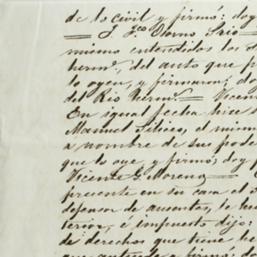 de lo civil y firmó: doy
— J. Jco. Osorno Srio —
mismo entendidos los S
herms., del auto que p
lo oyen, y firmaron; do
del Rio Herms. — Vicent
En igual fecha hice s
Manuel Felices, el mism
a nombre de sus pode
que lo oye, y firmó; doy f
Vicente G. Moreno — E
presente en su casa el S
defensor de ausentes, le hi
terior, é impuesto dijo:
de derechos que tiene ho
que entiende y firmó: do